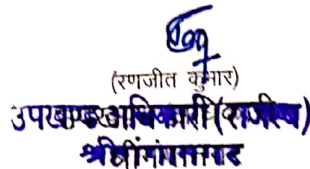 (रणजीत कुमार)
उपखण्ड अधिकारी (राजस्व)
श्रीगंगानगर